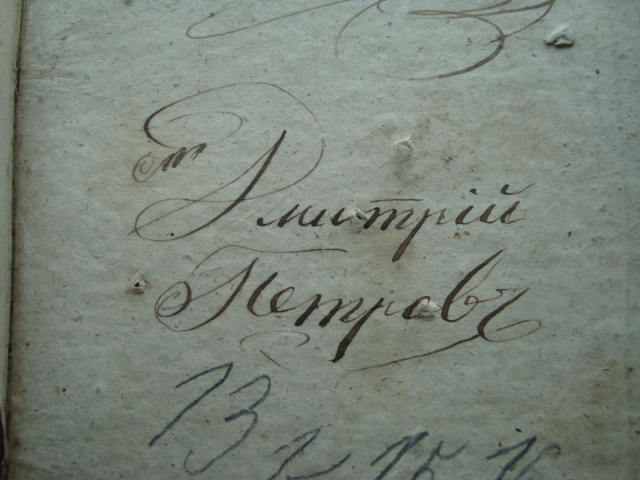 Дмитрій
Петровъ
13